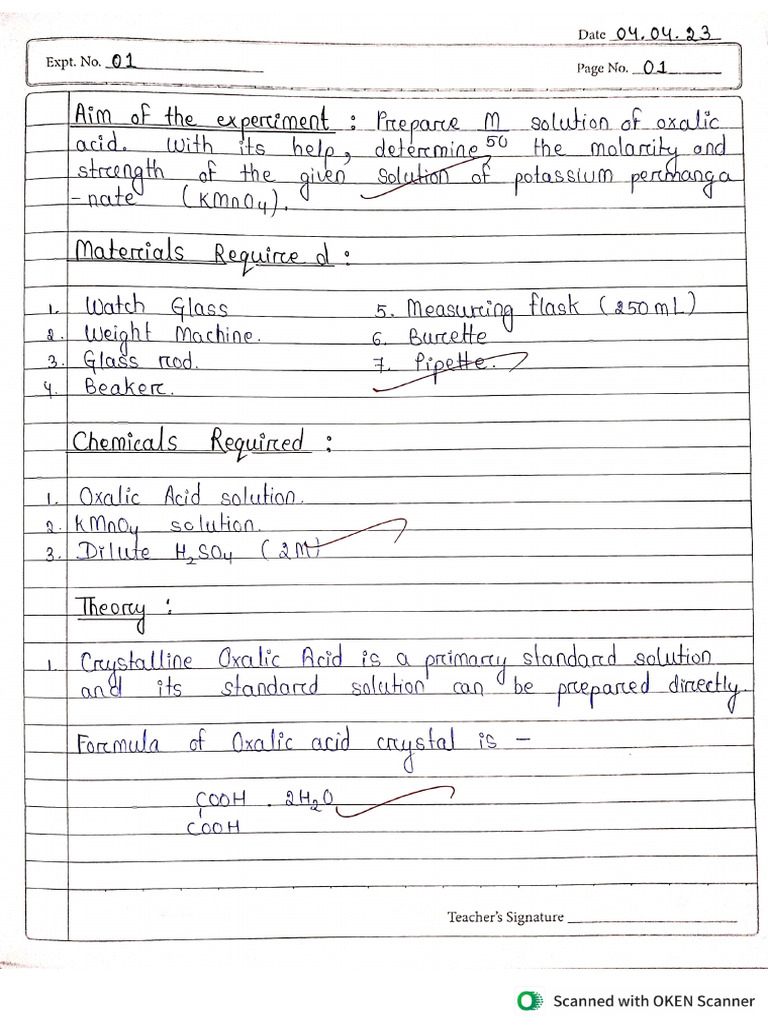 Date 04.04.23
Expt. No. 01
Page No. 01
Aim of the experiment : Prepare M/50 solution of oxalic
acid. With its help, determine the molarity and
strength of the given solution of potassium permanga
-nate (KMnO₄).
Materials Required :
1. Watch Glass
2. Weight Machine.
3. Glass rod.
4. Beaker.
5. Measuring flask (250mL)
6. Burette
7. Pipette.
Chemicals Required :
1. Oxalic Acid solution.
2. KMnO₄ solution.
3. Dilute H₂SO₄ (2M)
Theory :
1. Crystalline Oxalic Acid is a primary standard solution
and its standard solution can be prepared directly.
Formula of Oxalic acid crystal is –
COOH . 2H₂O
COOH
Teacher's Signature
Scanned with OKEN Scanner